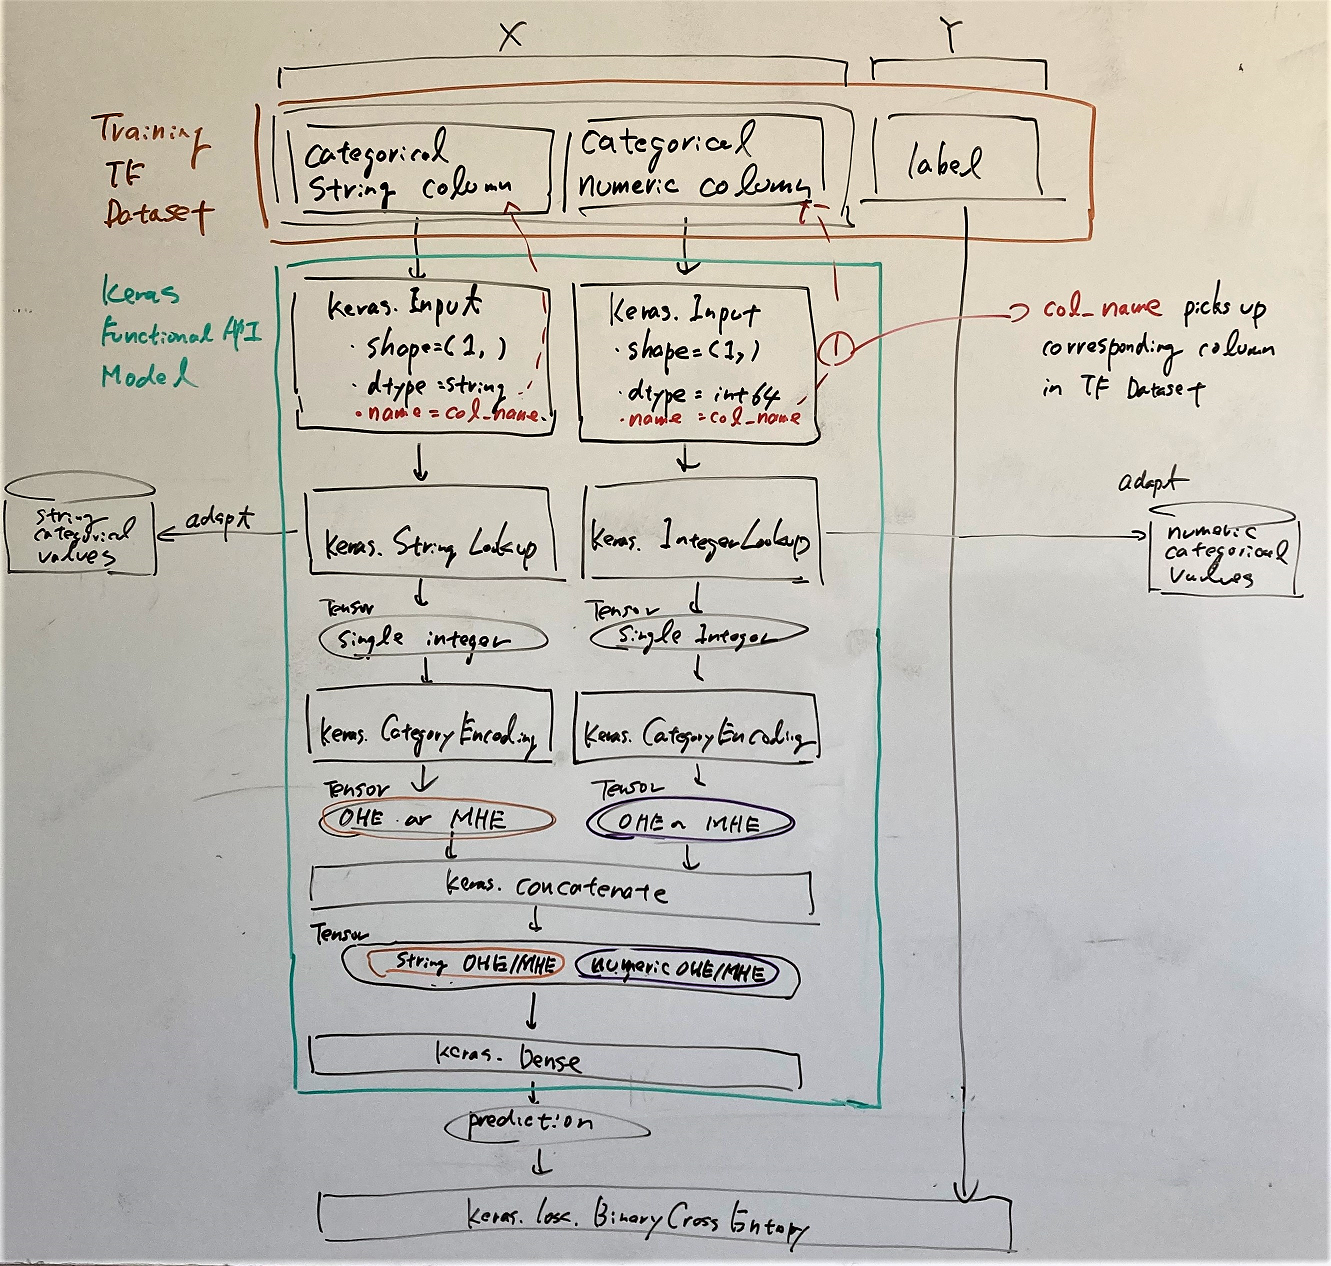 X
Y
Training
TF
Dataset
Categorical
String column
Categorical
numeric column
label
Keras
Functional API
Model
Keras.Input
· shape=(1,)
· dtype=string
· name = col_name
Keras.Input
· shape=(1,)
· dtype = int64
· name = col_name
1
col_name picks up
corresponding column
in TF Dataset
string
categorical
values
adapt
Keras. String Lookup
Keras. IntegerLookup
adapt
numeric
categorical
values
Tensor
single integer
Tensor
Single Integer
Keras. Category Encoding
Keras. Category Encoding
Tensor
OHE or MHE
Tensor
OHE or MHE
Keras. concatenate
Tensor
String OHE/MHE
numeric OHE/MHE
Keras. Dense
prediction
Keras. loss. BinaryCross Entopy